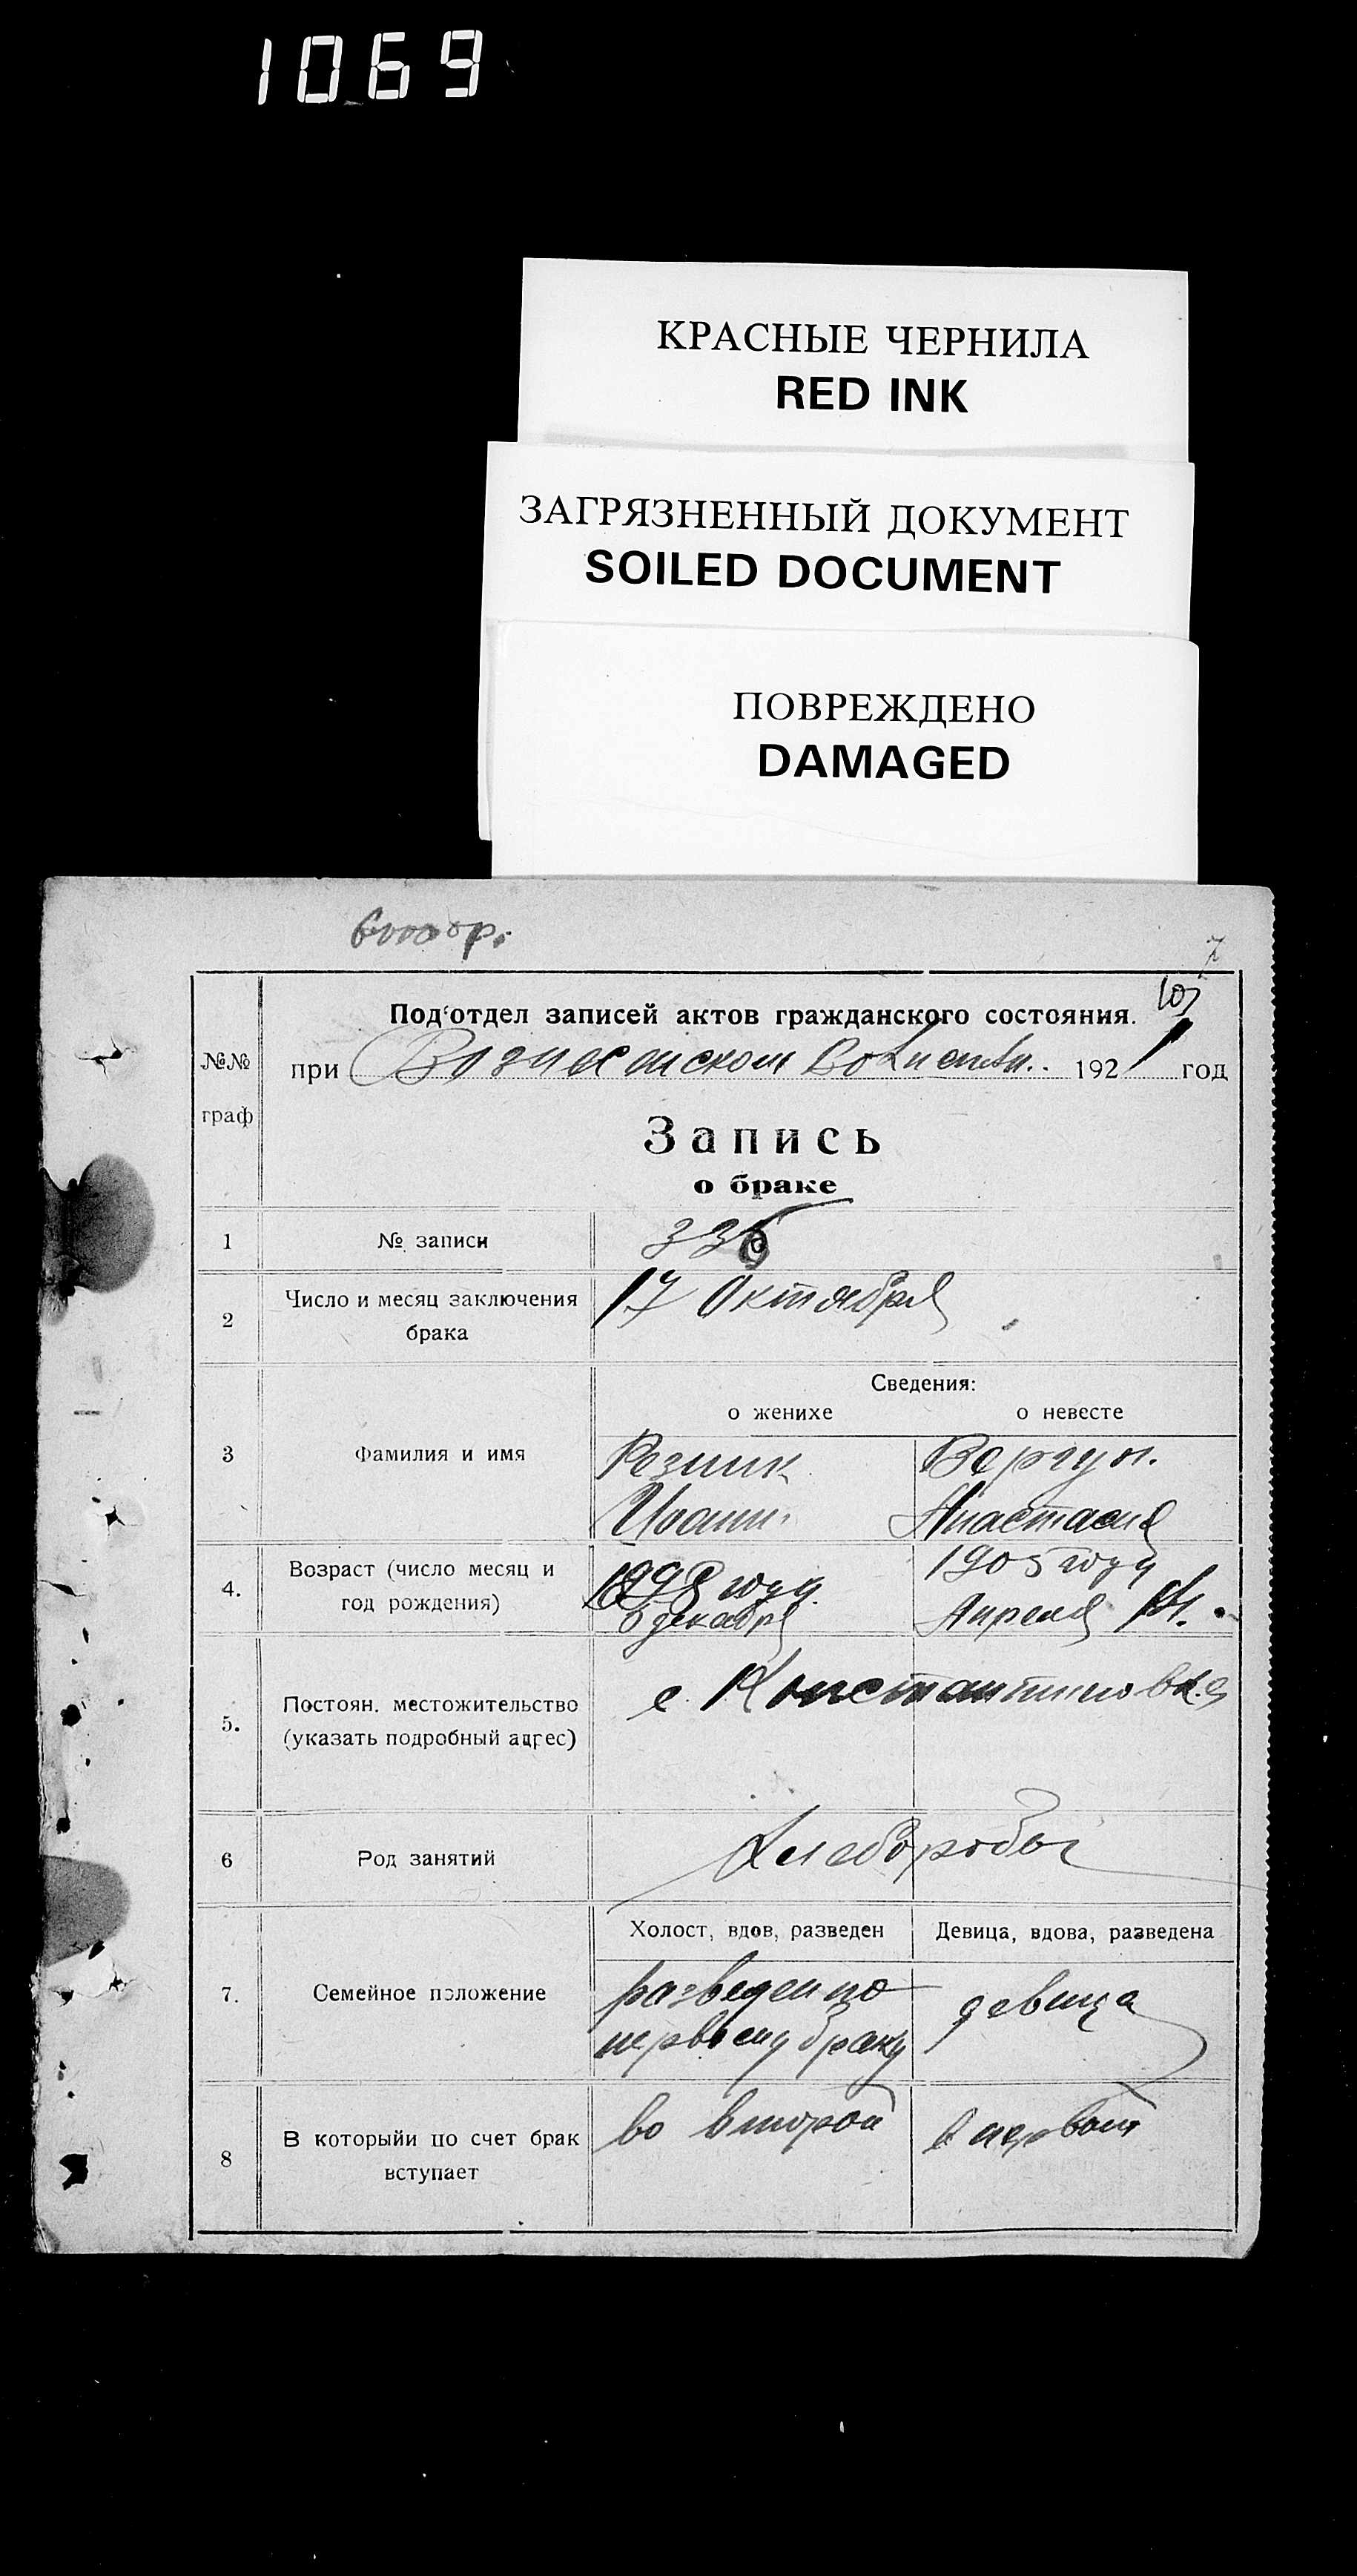 1069
КРАСНЫЕ ЧЕРНИЛА
RED INK
ЗАГРЯЗНЕННЫЙ ДОКУМЕНТ
SOILED DOCUMENT
ПОВРЕЖДЕНО
DAMAGED
7
№№
граф
Под'отдел записей актов гражданского состояния.
при Вознесенском 1921 год
Запись
о браке
1 № записи
2 Число и месяц заключения брака 17 Октября
Сведения:
о женихе о невесте
3 Фамилия и имя Резник Вергун.
Иоанн. Анастасия
4. Возраст (число месяц и год рождения) 1898 году 1905 году
6 декабря Апреля
5. Постоян. местожительство (указать подробный адрес) с. Константиновка
6 Род занятий Хлеборобы
Холост, вдов, разведен Девица, вдова, разведена
7. Семейное положение разведен по девица
первому браку
8 В которыйи по счет брак вступает во второй в первый